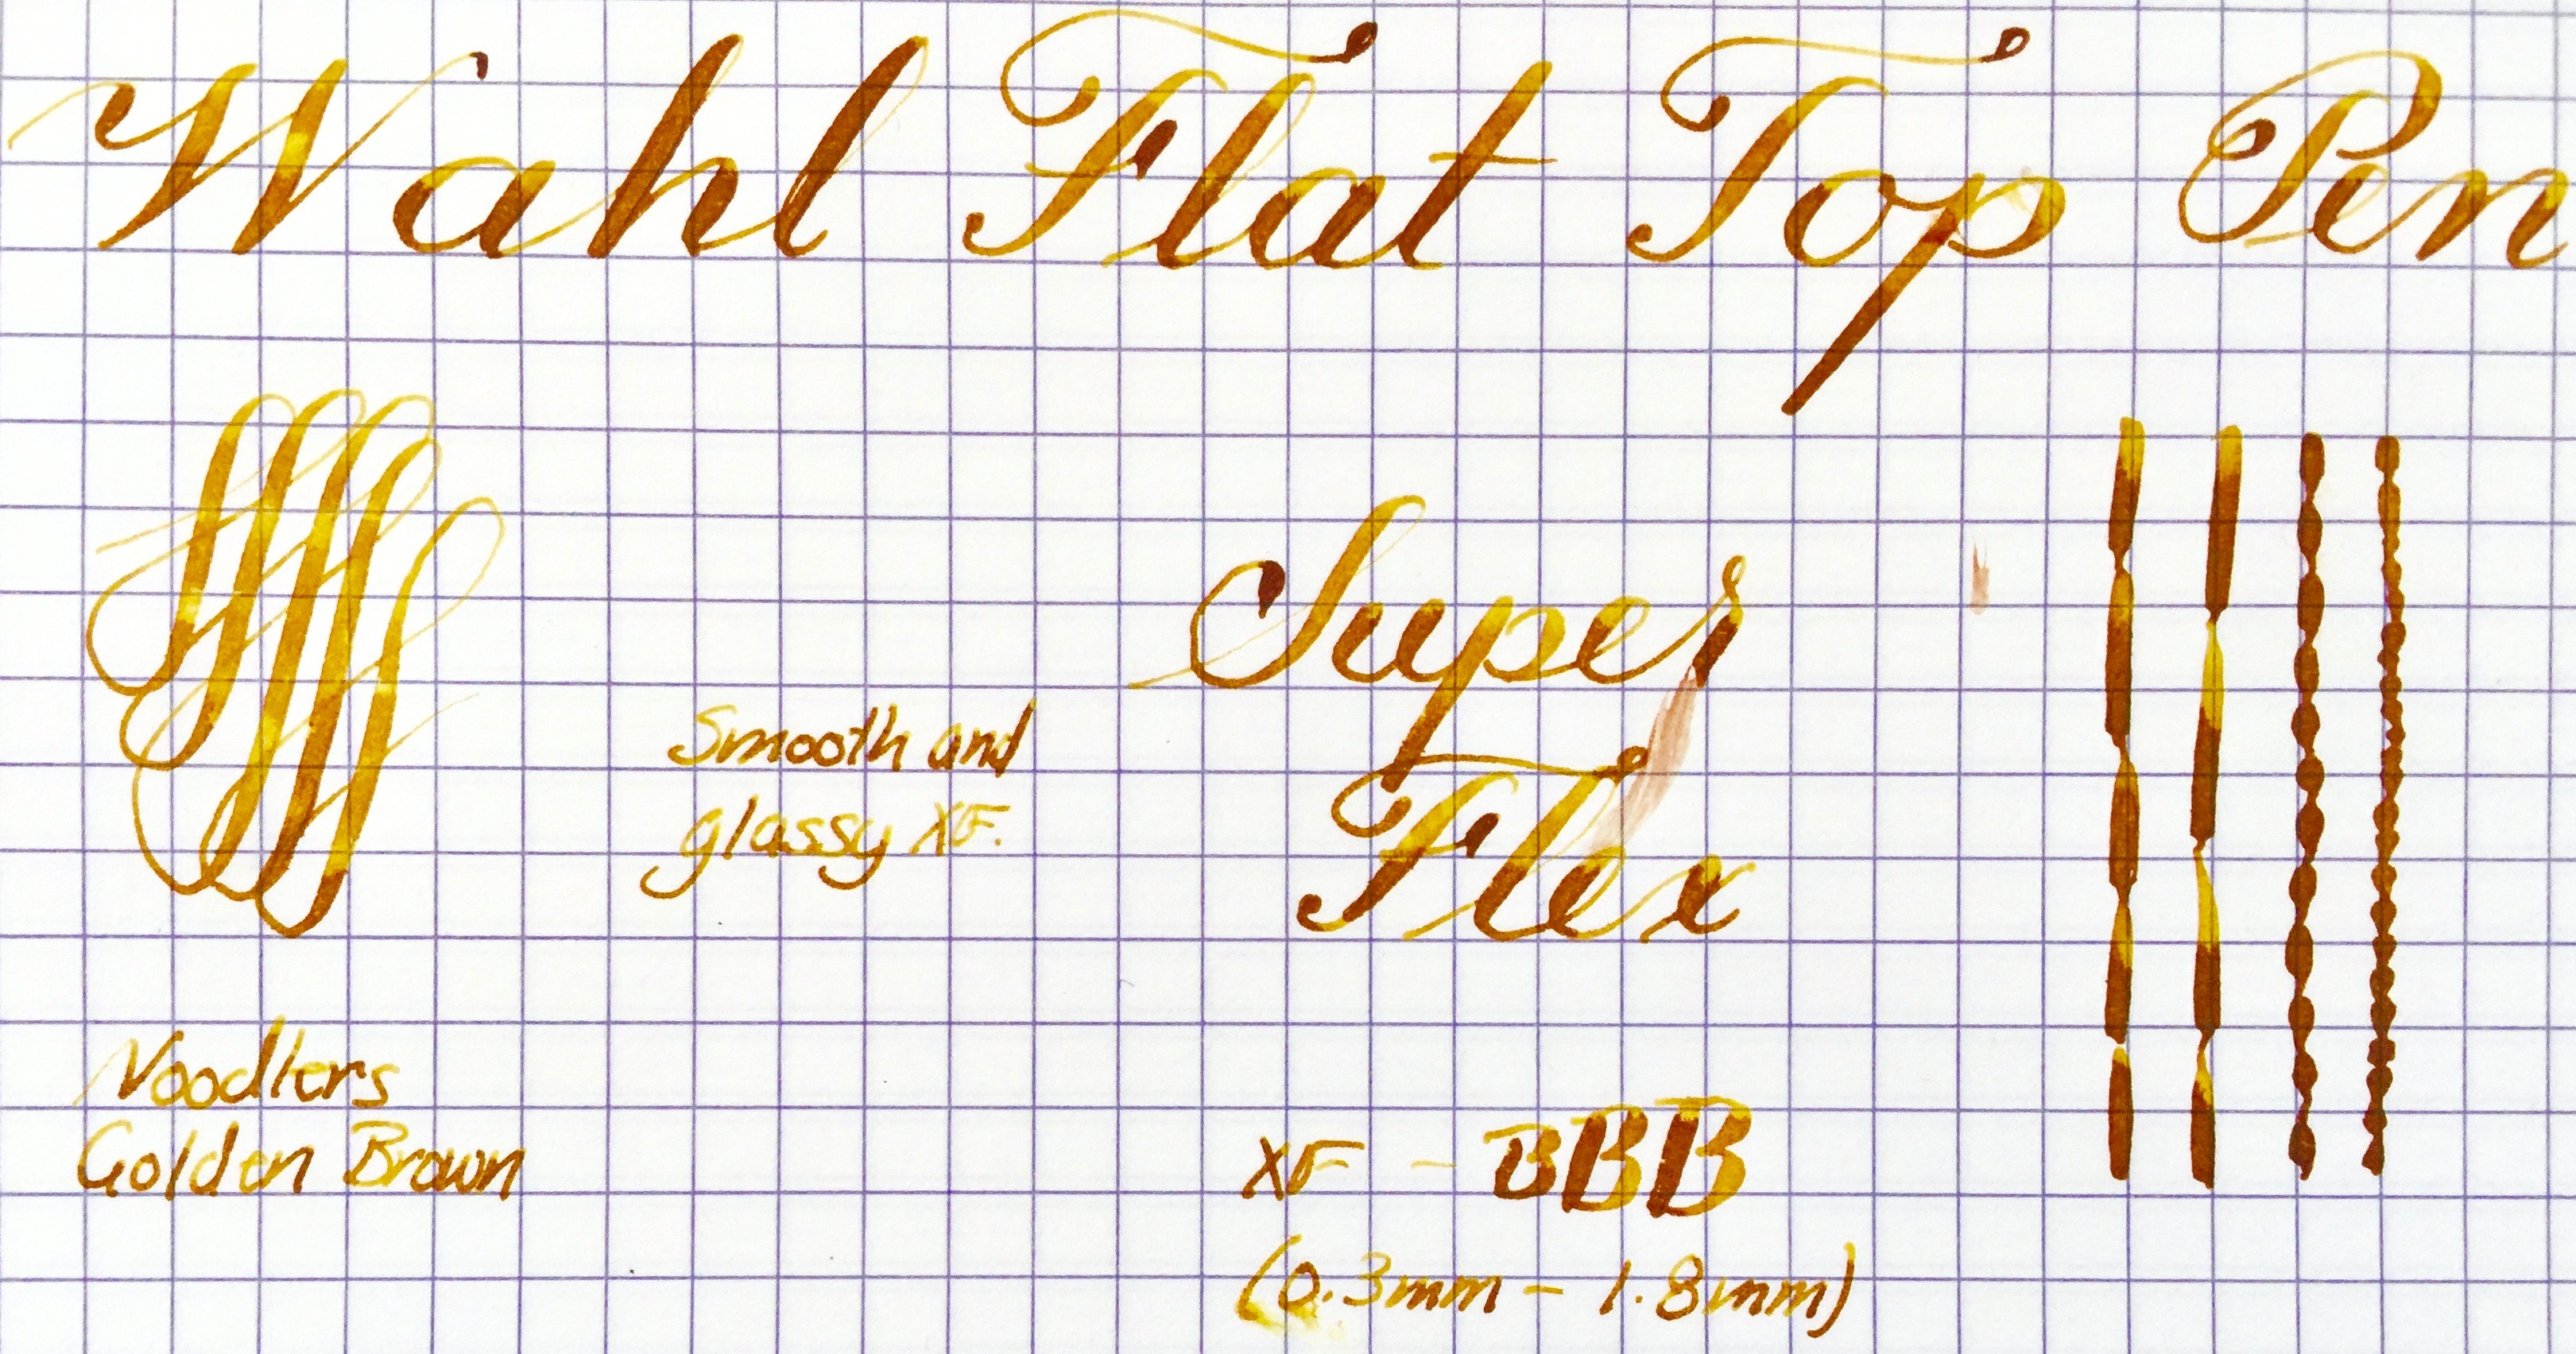 Wahl Flat Top Pen
Super
Smooth and
glassy XF.
Flex
Noodlers
Golden Brown
XF - BBB
(0.3mm - 1.8mm)